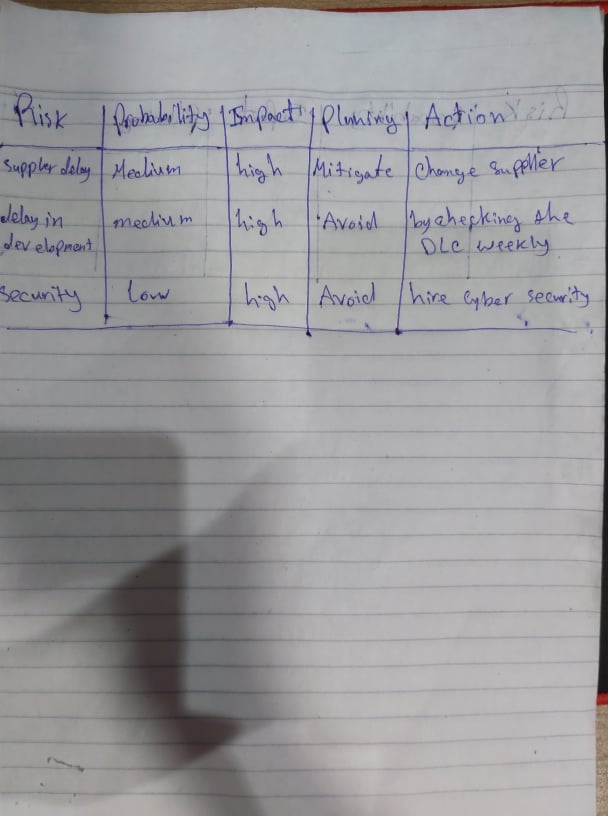 Risk Probability Impact Planning Action
Supplier delay Medium high Mitigate Change Supplier
delay in medium high Avoid by checking the
development DLC weekly
Security Low high Avoid hire Cyber security